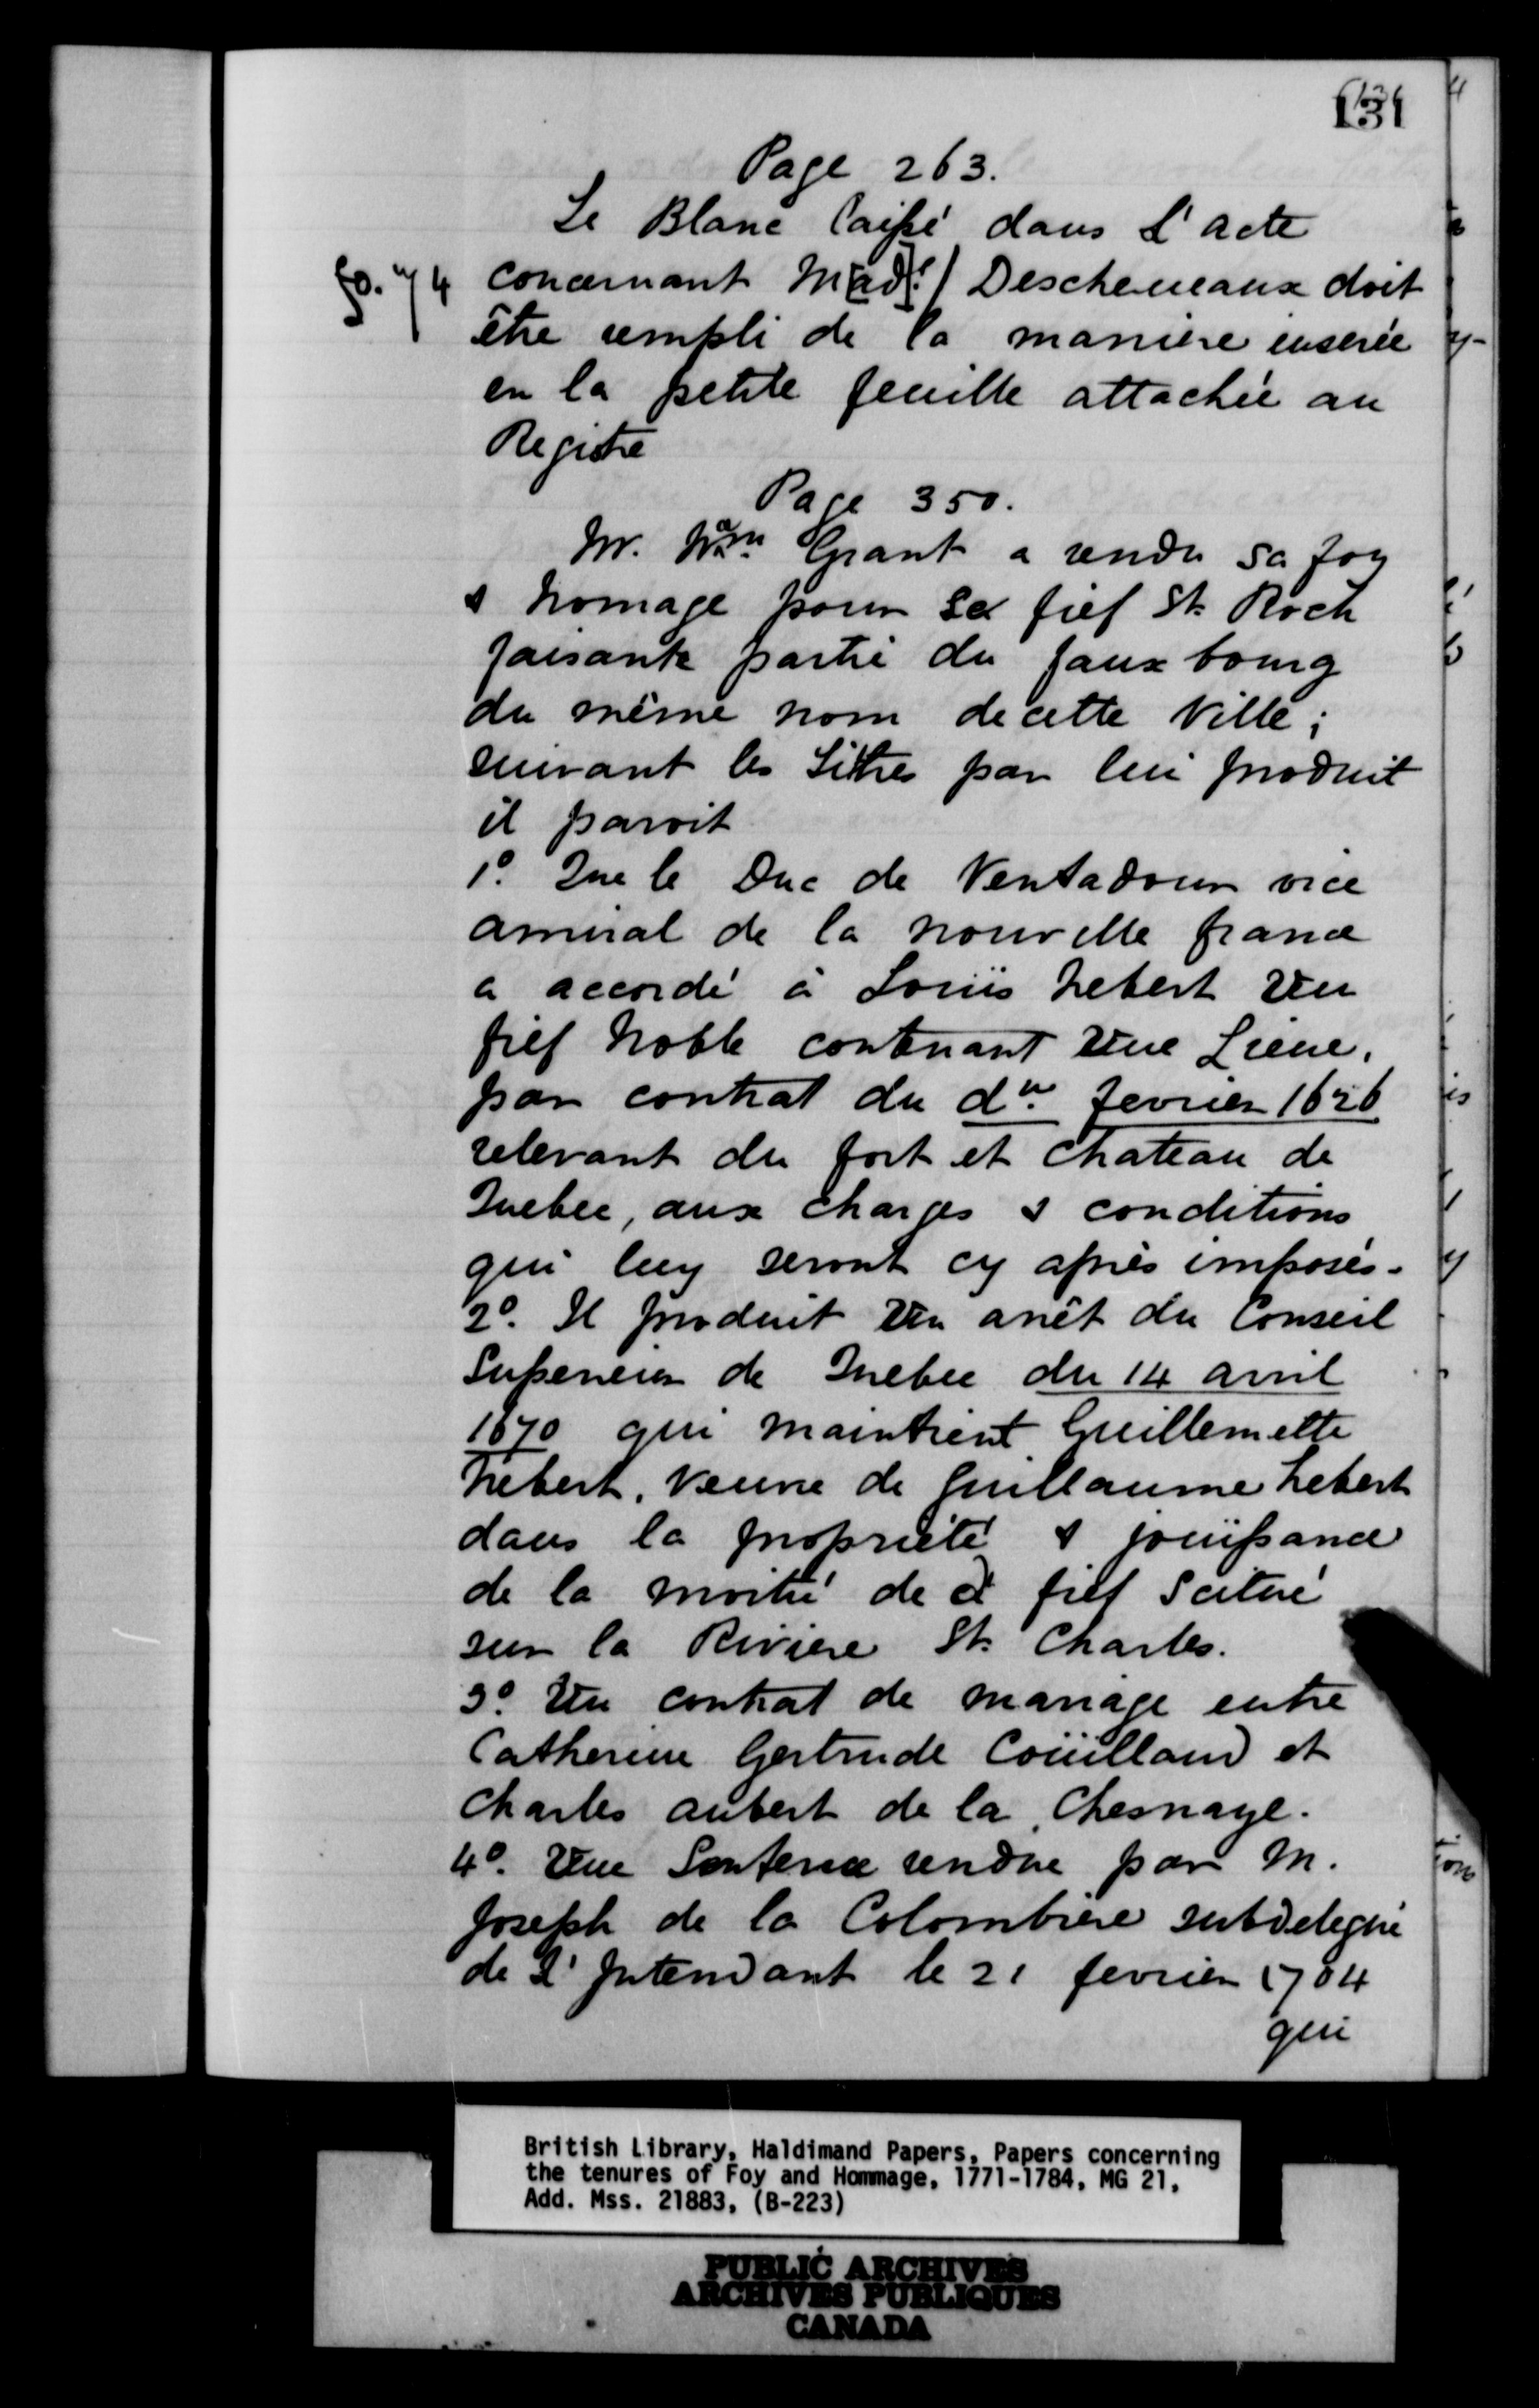 131
Page 263.
Le Blanc laissé dans L'acte
fo. 74 concernant M[ad]e/ Deschenaux doit
être rempli de la manière inserée
en la petite feuille attachée au
Registre
Page 350.
Mr. Wm Grant a rendu sa foy
& homage pour le fief St. Roch
faisante partie du faux bourg
du même nom de cette Ville;
suivant les Titres par lui produit
il paroit
1º. Que le Duc de Ventadour vice
amiral de la nouvelle france
a accordé à Louis hebert Un
fief Noble contenant Une Lieue,
par contrat du dr. fevrier 1626
relevant du fort et chateau de
Quebec, aux charges & conditions
qui luy seront cy après imposés.
2º. Il produit Un arrêt du Conseil
Superieur de Quebec du 14 avril
1670 qui maintient Guillemette
hebert, Veuve de Guillaume hebert
dans la propriété & jouissance
de la moitié de ce fief Scitué
sur la Riviere St. Charles.
3º. Un contrat de mariage entre
Catherine Gertrude Coüillard et
Charles aubert de la Chesnaye.
4º. Une Sentence rendue par M.
Joseph de la Colombiere subdelegué
de L'Intendant le 21 fevrier 1704
qui
British Library, Haldimand Papers, Papers concerning
the tenures of Foy and Hommage, 1771-1784, MG 21,
Add. Mss. 21883, (B-223)
PUBLIC ARCHIVES
ARCHIVES PUBLIQUES
CANADA